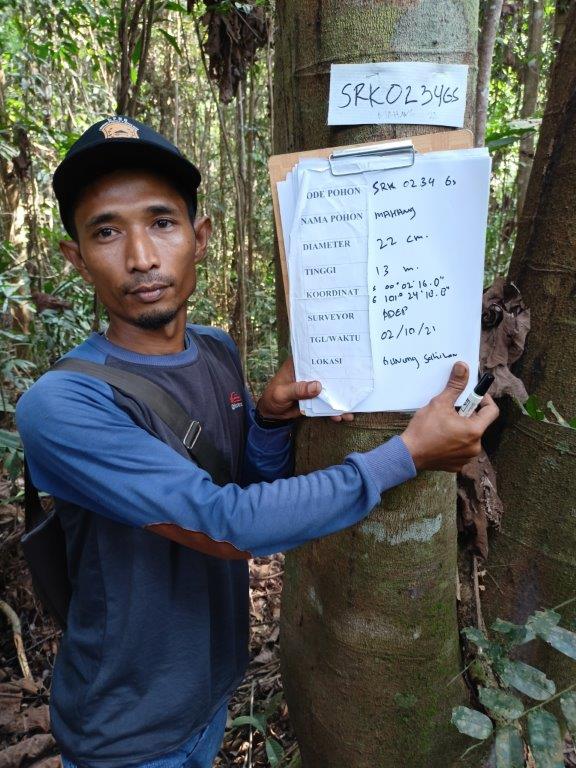 SRK0234GS
MAHANG
ODE POHON SRK 0234 Gs
NAMA POHON MAHANG
DIAMETER 22 cm.
TINGGI 13 m.
KOORDINAT S 00° 02' 16.0"
E 101° 24' 10.0"
SURVEYOR ADEP
TGL/WAKTU 02/10/21
LOKASI Gunung Sahilan